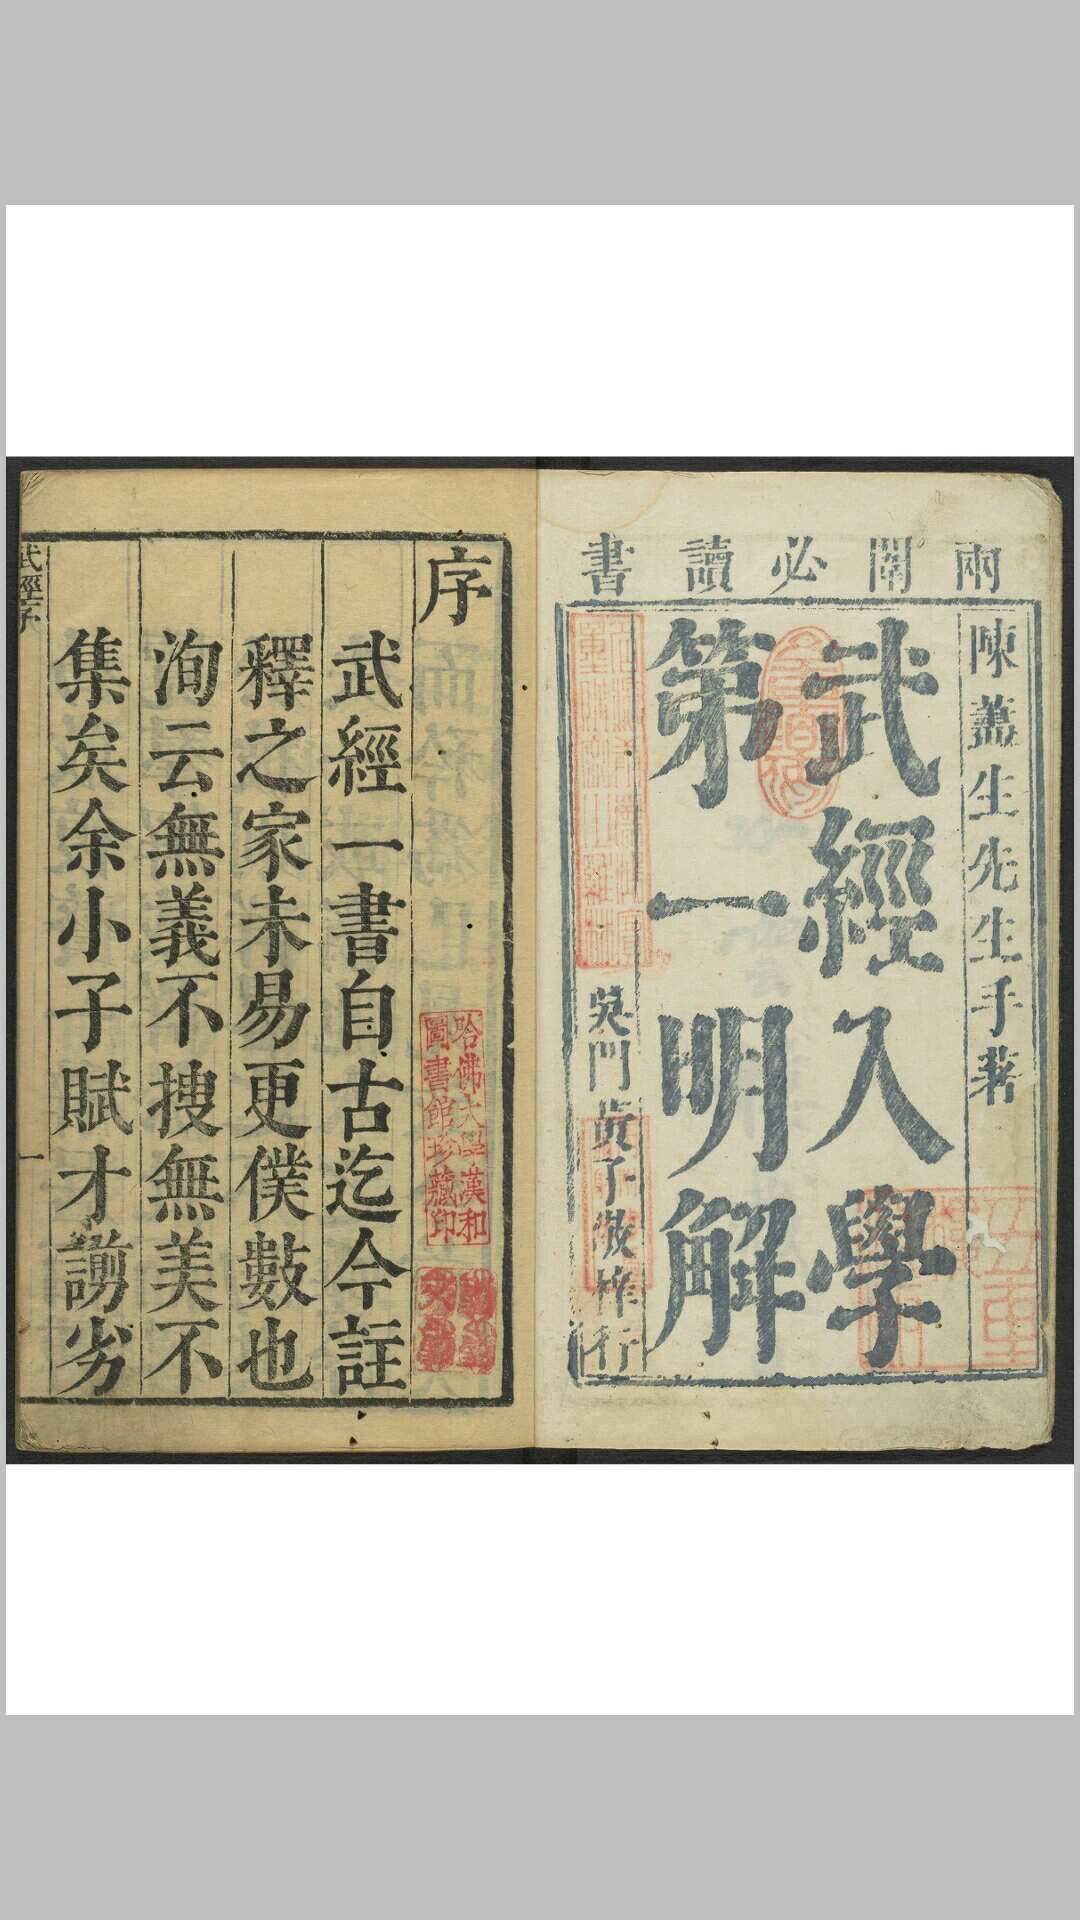 兩闈必讀書
陳蕙生先生手著
武經入學
第一明解
吳門黃子敬梓行
序
武經一書自古迄今註
釋之家未易更僕數也
洵云無義不搜無美不
集矣余小子賦才謭劣
武經序
一
哈佛大學漢和
圖書館珍藏印